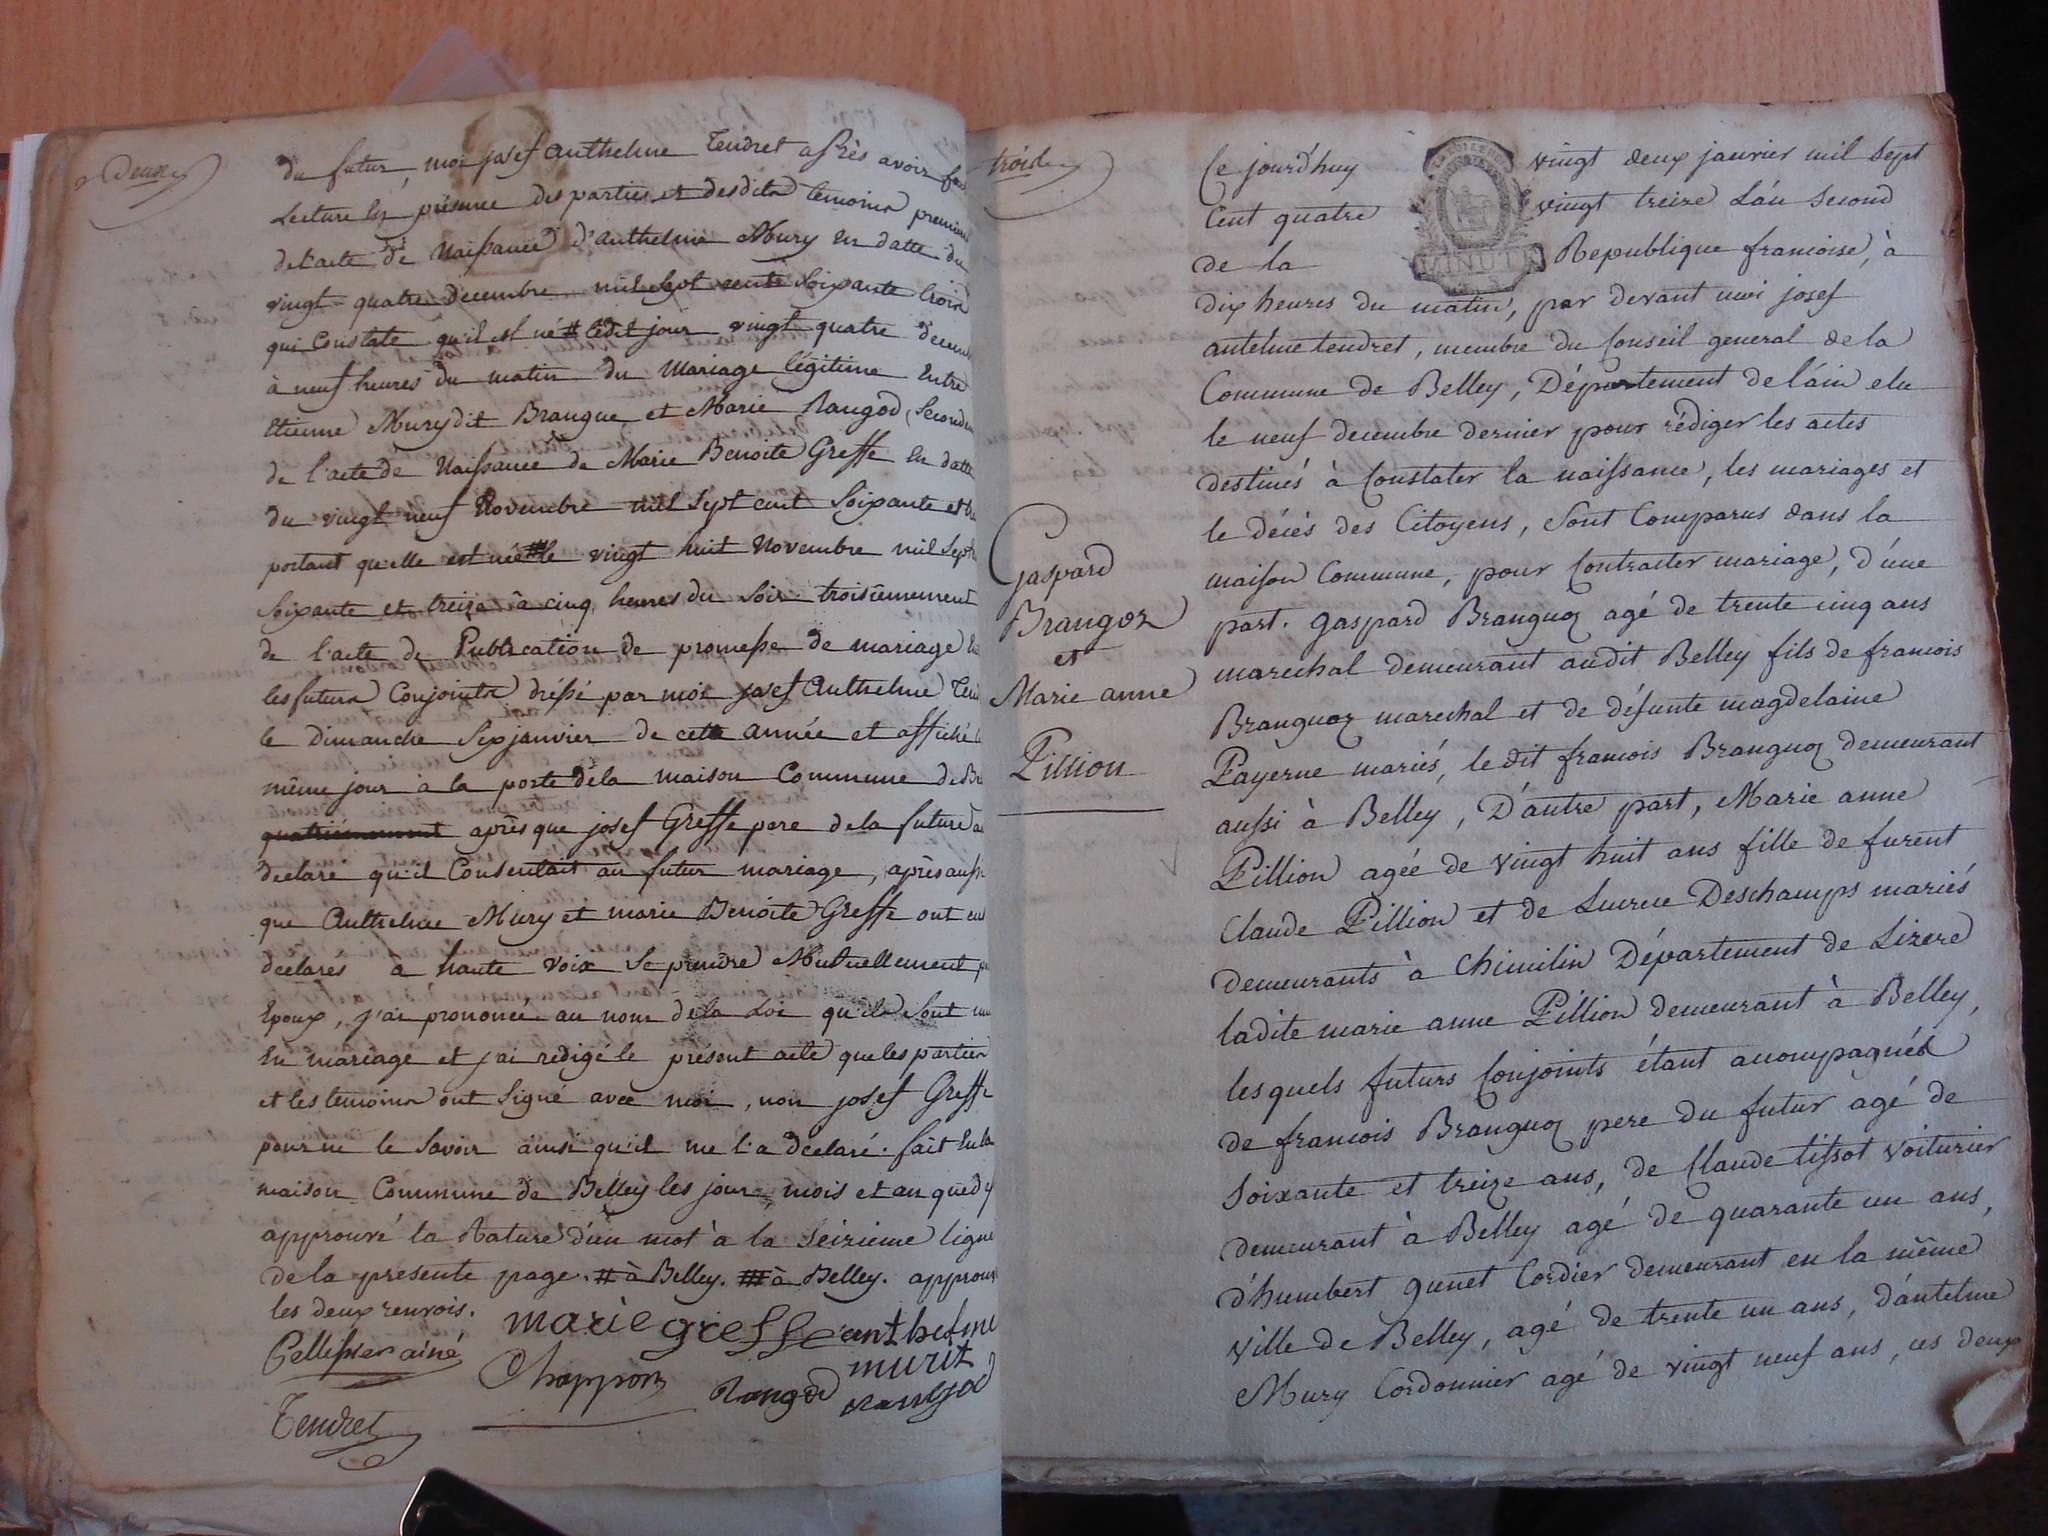 deux
du futur, moi josef anthelme Tendret après avoir fait
Lecture En présence des parties et desdits temoins premierem
de l'acte de Naissance d'anthelme Mury en datte du
vingt quatre decembre mil sept cents soixante trois
qui Constate qu'il est né # ledit jour vingt quatre decemb
à neuf heures du matin du Mariage légitime Entre
Etienne Mury dit Brangue et Marie Rangod, Second
de l'acte de Naissance de Marie Benoite Greffe En datte
du vingt neuf Novembre mil sept cent Soixante et
portant qu'elle est née ## le vingt huit Novembre mil sept
Soixante et treize à cinq heures du Soir troisiemement
de l'acte de Publication de promesse de mariage
les futurs Conjoints dréssé par moi josef anthelme Ten
le dimanche Six janvier de cette année et affiché
même jour à la porte de la maison Commune de Be
quatriémement après que josef Greffe pere de la future a
declaré qu'il Consentait au futur mariage, après aussi
que anthelme Mury et marie Benoite Greffe ont eu
declarés a haute voix Se prendre Mutuellement p
Epoux, j'ai prononcé au nom de la Loi qu'ils Sont un
En mariage et j'ai redigé le présent acte que les parties
et les temoins ont Signé avec moi, non josef Greffe
pour ne le Savoir ainsi qu'il me l'a déclaré. fait En la
maison Commune de Belley les jour, mois et an que dy
approuvé la Rature d'un mot à la Seizieme ligne
de la presente page. # à Belley. ## à Belley. approuv
les deux renvois.
marie greffe anthelme
murit
Pellissier ainé
Chappon
Rangod
Rangod
Tendret
trois
Ce jourd'huy vingt deux janvier mil Sept
Cent quatre vingt treize L'an Second
de la Republique francoise, à
MINUTE
dix heures du matin, par devant moi josef
antelme tendret, membre du Conseil general de la
Commune de Belley, Département de l'ain elu
le neuf decembre dernier pour rédiger les actes
destinés à Constater la naissance, les mariages et
le décès des Citoyens, Sont Comparus dans la
maison Commune, pour Contracter mariage, d'une
part. gaspard Branguoz agé de trente cinq ans
marechal demeurant audit Belley fils de francois
Branguoz marechal et de défunte magdelaine
Payerne mariés, le dit francois Branguoz demeurant
aussi à Belley, D'autre part, Marie anne
Pillion agée de vingt huit ans fille de furent
Claude Pillion et de Lucrece Deschamps mariés
demeurants à Chimilin Département de Lizere
ladite marie anne Pillion demeurant à Belley,
lesquels futurs Conjoints étant accompagnés
de francois Branguoz pere du futur agé de
Soixante et treize ans, de Claude tissot voiturier
demeurant à Belley agé de quarante un ans,
d'humbert gunet Cordier demeurant en la même
ville de Belley, agé de trente un ans, d'antelme
Mury Cordonnier agé de vingt neuf ans, ces deux
Gaspard
Brangoz
et
Marie anne
Pillion